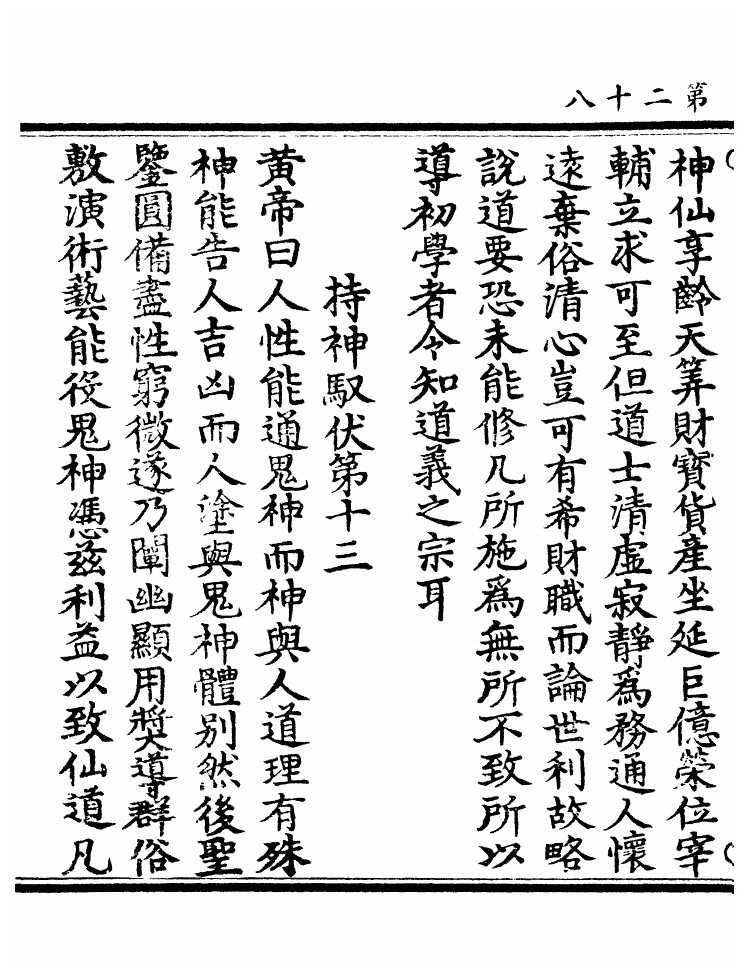 第二十八
神仙享齡天筭財寶貨產坐延巨億榮位宰
輔立求可至但道士清虛寂靜爲務通人懷
遠棄俗清心豈可有希財職而論世利故略
說道要恐未能修凡所施爲無所不致所以
導初學者令知道義之宗耳
持神馭伏第十三
黃帝曰人性能通鬼神而神與人道理有殊
神能告人吉凶而人塗與鬼神體别然後聖
鑒圓備盡性窮微遂乃闡幽顯用奬導群俗
敷演術藝能役鬼神憑茲利益以致仙道凡